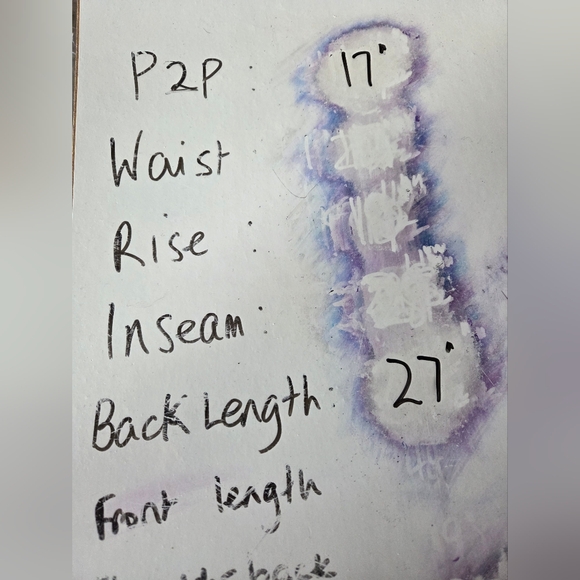 P2P : 17"
Waist
Rise :
Inseam :
Back Length : 27"
Front length
back